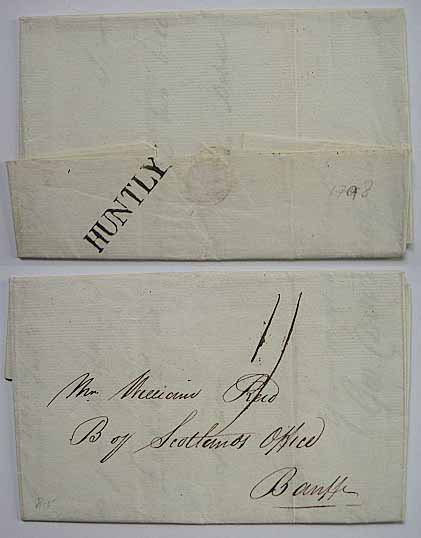 HUNTLY
1798
11
Mr. William Reid
B of Scotlands Office
Banff